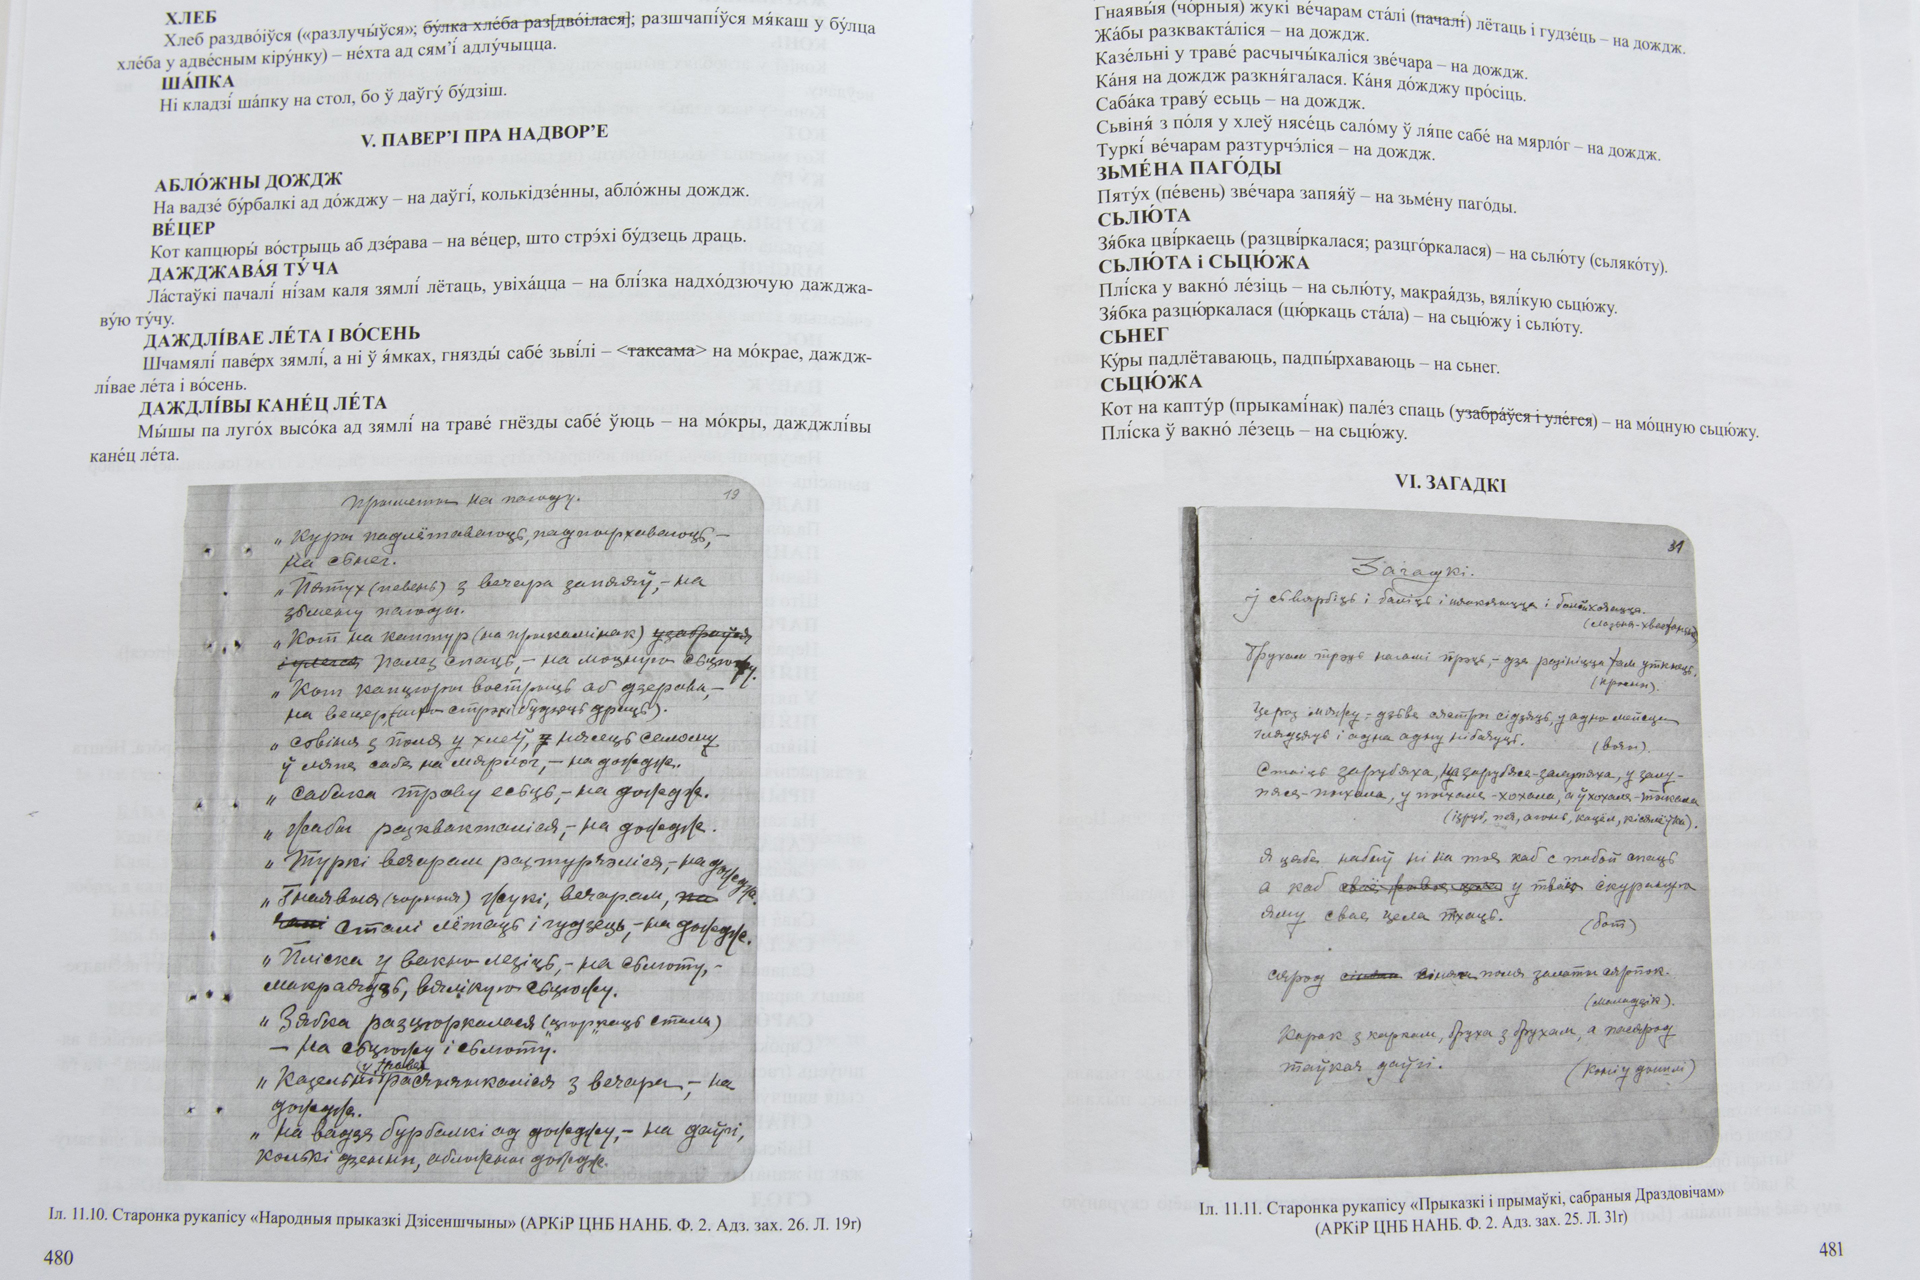 ХЛЕБ
Хлеб раздво́іўся («разлучы́ўся»; бу́лка хле́ба раз[дво́ілася]; разшчапі́ўся мя́каш у бу́лца
хле́ба у адве́сным кіру́нку) – не́хта ад сям’і́ адлу́чыцца.
ША́ПКА
Ні кладзі́ ша́пку на стол, бо ў даўгу́ бу́дзіш.
V. ПАВЕР’І ПРА НАДВОР’Е
АБЛО́ЖНЫ ДОЖДЖ
На вадзе́ бу́рбалкі ад до́жджу – на даўгі́, колькідзе́нны, абло́жны дождж.
ВЕ́ЦЕР
Кот капцюры́ во́стрыць аб дзе́рава – на ве́цер, што стрэ́хі бу́дзець драць.
ДАЖДЖАВА́Я ТУ́ЧА
Ла́стаўкі пачалі́ ні́зам каля зямлі́ лётаць, увіха́цца – на блі́зка надхо́дзючую дажджа-
ву́ю ту́чу.
ДАЖДЛІ́ВАЕ ЛЕ́ТА І ВО́СЕНЬ
Шчамялі́ паве́рх зямлі́, а ні ў я́мках, гнязды́ сабе́ зьві́лі – <таксама> на мо́крае, даждж-
лі́вае ле́та і во́сень.
ДАЖДЛІ́ВЫ КАНЕ́Ц ЛЕ́ТА
Мы́шы па луго́х высо́ка ад зямлі́ на траве́ гнёзды сабе́ ўюць – на мо́кры, дажджлі́вы
кане́ц ле́та.
Прыметы на пагоду.
19
„ Куры падлётаваюць, падпырхаваюць, –
на сьнег.
„ Пятух (певень) з вечара запяяў, – на
зьмену пагоды.
„ Кот на каптур (на прыкамінак) узабраўся
і улегся палез спаць, – на моцную сьцюжу.
„ Кот капцюры вострыць аб дзерава, –
на вецер (што стрэхі будзець драць).
„ Сьвіня з поля у хлеў, нясець салому
ў ляпе сабе на мярлог, – на дождж.
„ Сабака траву есьць, – на дождж.
„ Жабы разквакталіся, – на дождж.
„ Туркі вечарам разтурчэліся, – на дождж.
„ Гнаявыя (чорныя) жукі, вечарам, па
чалі сталі лётаць і гудзець, – на дождж.
„ Пліска у вакно лезіць, – на сьлюту, –
макраядзь, вялікую сьцюжу.
„ Зябка разцюркалася („цюркаць стала)
– на сьцюжу і сьлюту.
у траве
„ Казельні з вечара, – на
дождж.
„ На вадзе бурбалкі ад дожджу, – на даўгі,
колькі дзенны, абложны дождж.
Іл. 11.10. Старонка рукапісу «Народныя прыказкі Дзісеншчыны» (АРКіР ЦНБ НАНБ. Ф. 2. Адз. зах. 26. Л. 19г)
480
Гнаявы́я (чо́рныя) жукі́ ве́чарам ста́лі (пачалі́) лётаць і гудзе́ць – на дождж.
Жа́бы разквакта́ліся – на дождж.
Казе́льні у траве́ расчычы́каліся зве́чара – на дождж.
Ка́ня на дождж разкня́галася. Ка́ня до́жджу про́сіць.
Саба́ка траву́ есьць – на дождж.
Сьвіня́ з по́ля у хлеў нясе́ць сало́му ў ля́пе сабе́ на мярло́г – на дождж.
Туркі́ ве́чарам разтурчэ́ліся – на дождж.
ЗЬМЕ́НА ПАГО́ДЫ
Пяту́х (пе́вень) зве́чара запяя́ў – на зьме́ну паго́ды.
СЬЛЮ́ТА
Зя́бка цві́ркаець (разцві́ркалася; разцго́ркалася) – на сьлю́ту (сьляко́ту).
СЬЛЮ́ТА і СЬЦЮ́ЖА
Плі́ска у вакно́ ле́зіць – на сьлю́ту, макрая́дзь, вялі́кую сьцю́жу.
Зя́бка разцю́ркалася (цю́ркаць ста́ла) – на сьцю́жу і сьлю́ту.
СЬНЕГ
Ку́ры падлётаваюць, падпы́рхаваюць – на сьнег.
СЬЦЮ́ЖА
Кот на капту́р (прыкамі́нак) пале́з спаць (узабра́ўся і уле́гся) – на мо́цную сьцю́жу.
Плі́ска ў вакно́ ле́зець – на сьцю́жу.
VI. ЗАГАДКІ
31
Загадкі.
І сьвярбіць і баліць і
Брухам трэць нагамі прэць, – дзе там уткнець.
(кросны).
Цераз мяжу – дзьве сястры сідзяць, у адно мейсца
глядзяць і адна адну ні бачуць. (вочы).
Стаіць зарубяха,
(ізруб, печ, агонь, кацёл, ).
Я цябе набыў ні на тоя каб с табой спаць
а каб у тваёю скураную
яму свае цела пхаць. (бот)
сярод поля залаты сярпок.
(маладзік).
Карак з каркам, бруха з брухам, а пасярод
таўкая даўгі. (Коні у дышлі)
Іл. 11.11. Старонка рукапісу «Прыказкі і прымаўкі, сабраныя Драздовічам»
(АРКіР ЦНБ НАНБ. Ф. 2. Адз. зах. 25. Л. 31г)
481